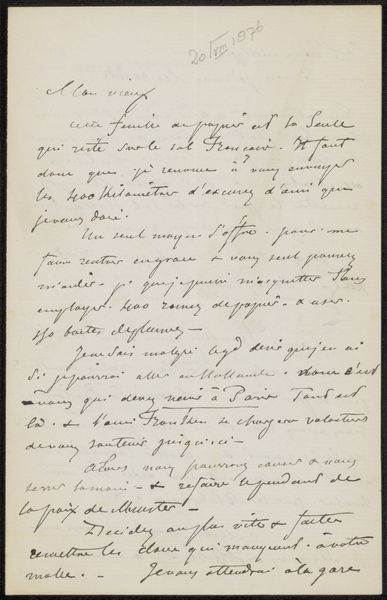 20/VIII 1876
Mon vieux
cette feuille de papier est la seule
qui reste sur le sol Français. Il faut
donc que je renonce à vous envoyer
les 400 kilomètres d'excuses d'ami que
je vous dois.
Un seul moyen s'offre pour me
faire rentrer en grace & vous seul pouvez
m'aider - je puisse m'acquitter sans
employer 400 rames de papier & user
150 boites de plumes -
Je ne sais malgré le gd désir que j'en ai
si je pourrai aller en Hollande. donc c'est
vous qui devez venir à Paris Tout est
là. & l'ami se chargera volontiers
de vous jusqu'ici -
Alors nous pourrons causer & nous
serrer la main - & refaire le pendant de
la paix de Munster -
Décidez au plus vite & faites
remettre les clous qui manquent à votre
malle. - Je vous attendrai à la gare